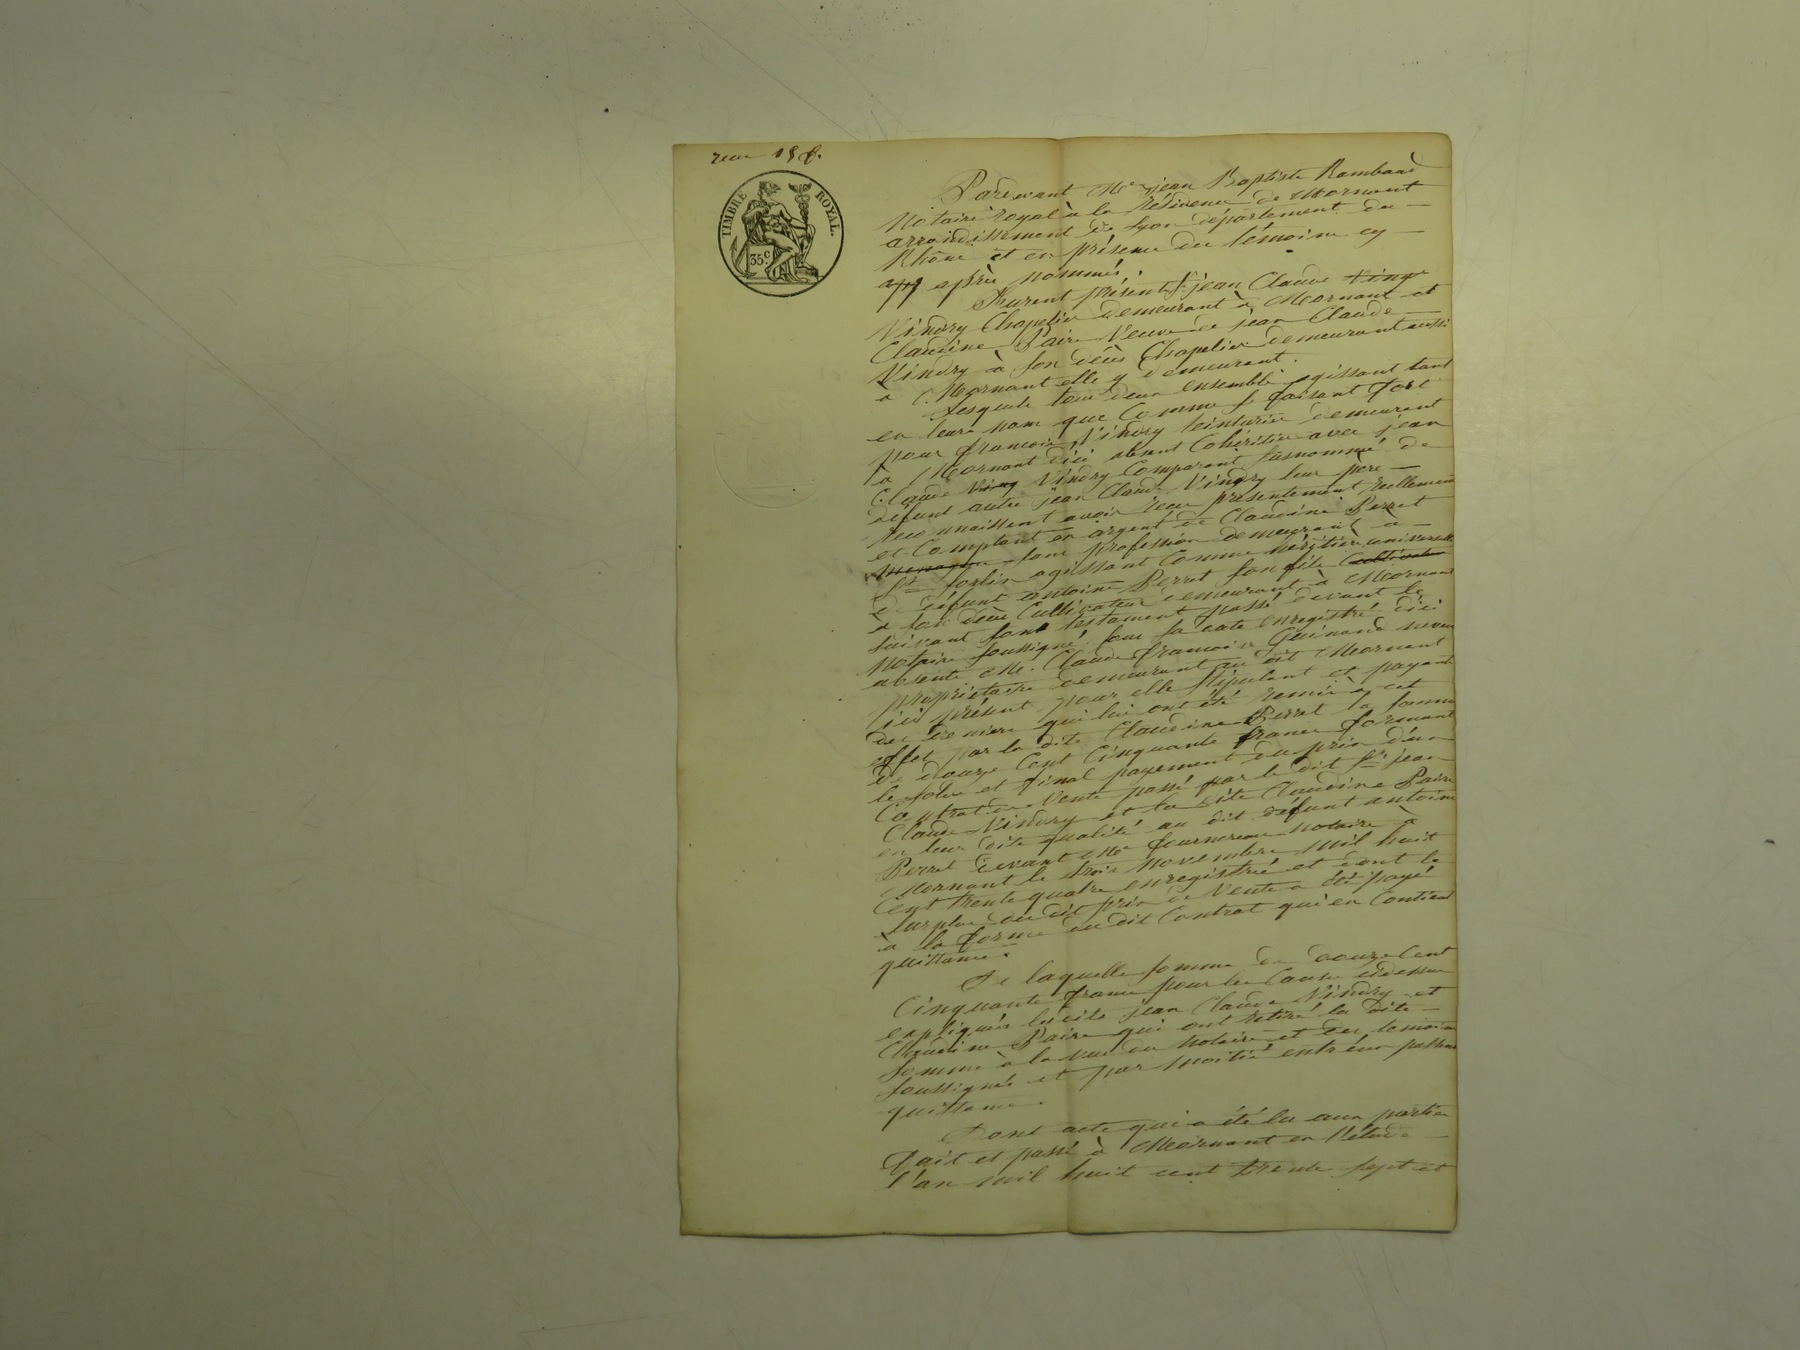 TIMBRE ROYAL.
35 c.
Pardevant Me jean Baptiste Rambaud
Notaire royal à la résidence de Mornant
arrondissement de Lyon département du
Rhône et en présence des témoins cy
après nommés.
Furent présents Sr. jean Claude
Vindry Chapelier demeurant à Mornant et
Claudine Paire Veuve de jean Claude
Vindry à son décès Chapelier demeurant aussi
à Mornant elle y demeurant.
Lesquels tous deux ensemble agissant tant
en leurs noms que Comme se faisant fort
pour françois Vindry teinturier demeurant
à Mornant d'ici absent Cohéritier avec jean
Claude Vindry Comparant susnommé de
défunt autre jean Claude Vindry leur père
reconnaissent avoir reçu présentement réellement
et Comptant en argent de Claudine Perret
sans profession demeurant à
St Sorlin agissant Comme héritière universelle
de défunt antoine Perret son fils
à son décès Cultivateur demeurant à Mornant
suivant son testament passé devant le
Notaire soussigné sous sa date enregistré d'ici
absente Me. Claude françois Guinand neveu
propriétaire demeurant au dit Mornant
ici présent pour elle stipulant et payant
des deniers qui lui ont été remis à cet
effet par la dite Claudine Perret la somme
de douze Cent Cinquante francs formant
le solde et final payement du prix d'un
Contrat de Vente passé par le dit Sr. jean
Claude Vindry et la dite Claudine Paire
en leur dite qualité au dit défunt antoine
Perret devant Me fournereau Notaire à
Mornant le trois Novembre mil huit
Cent trente quatre enregistré et dont le
surplus du dit prix de Vente a été payé
à la forme du dit Contrat qui en Contient
quittance.
De laquelle somme de douze Cent
Cinquante francs pour les Causes cidessus
expliquées lesdits jean Claude Vindry et
Claudine Paire qui ont retiré la dite
somme à la vue du Notaire et des témoins
soussignés et par moitié entr'eux passent
quittance.
Dont acte qui a été lu aux parties
fait et passé à Mornant en l'étude
l'an mil huit cent trente sept et